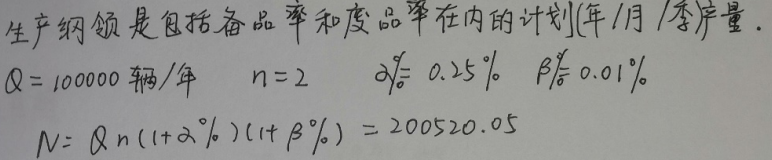 生产纲领是包括备品率和废品率在内的计划(年/月/季)产量.
Q=100000辆/年 n=2 α%=0.25% β%=0.01%
N=Qn(1+α%)(1+β%)=200520.05